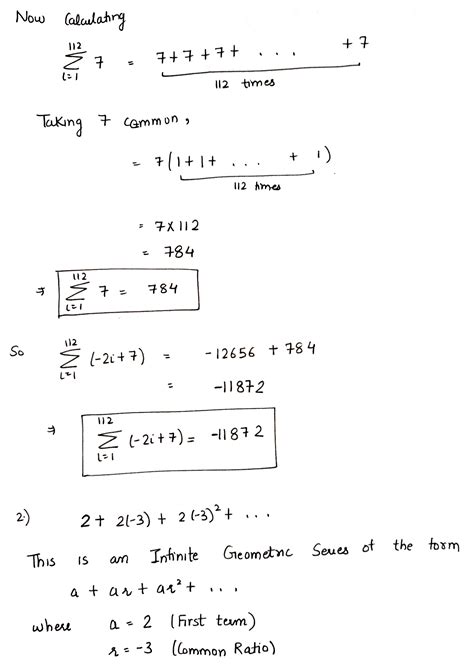 Now Calculating
112
∑ 7 = 7+7+7+ . . . +7
i=1
112 times
Taking 7 common,
= 7(1+1+ . . . + 1)
112 times
= 7×112
= 784
112
⇒ ∑ 7 = 784
i=1
112
So ∑ (-2i+7) = -12656 + 784
i=1
= -11872
112
⇒ ∑ (-2i+7) = -11872
i=1
2.) 2 + 2(-3) + 2(-3)² + . . .
This is an Infinite Geometric Series of the form
a + ar + ar² + . . .
where a = 2 (First term)
r = -3 (Common Ratio)